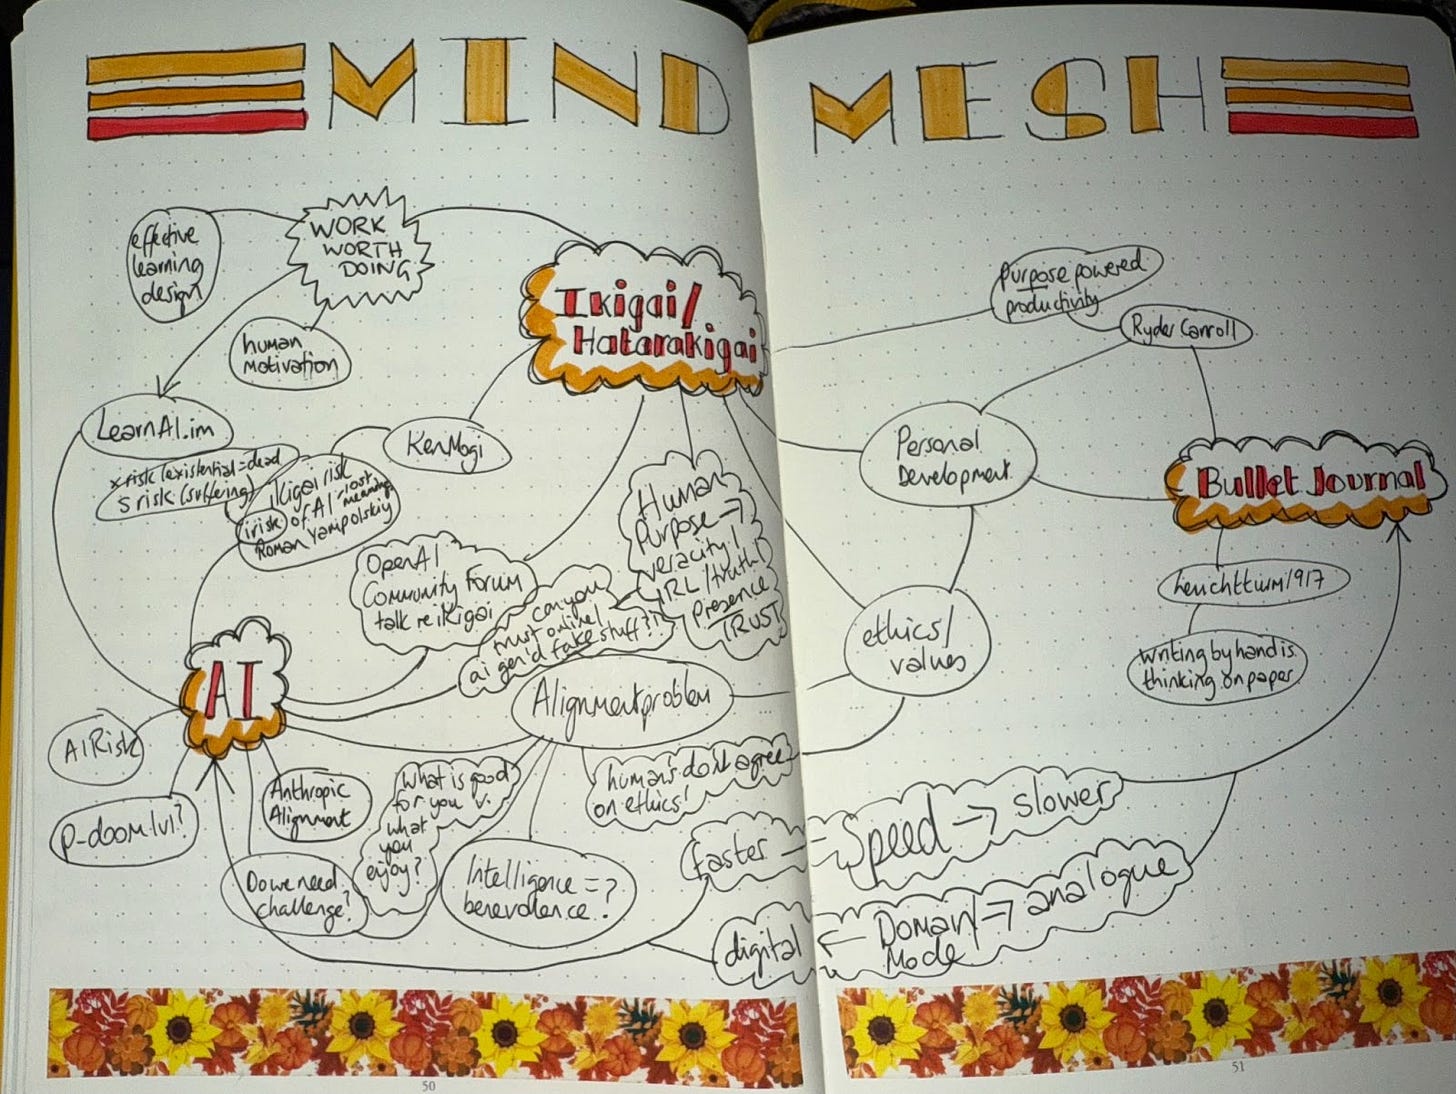 MIND MESH
effective
learning
design
WORK
WORTH
DOING
human
motivation
Ikigai/
Hatarakigai
purpose powered
productivity
Ryder Carroll
LearnAI.im
Ken Mogi
x risk (existential = dead
s risk (suffering)
ikigai risk
of AI - lost
meaning
irisk
Roman Yampolskiy
Personal
Development
Bullet Journal
Human
Purpose →
veracity/
IRL/truth/
Presence
TRUST
OpenAI
Community Forum
talk re iKigai
can you
trust online/
ai gen'd fake stuff?!
leuchtturm1917
writing by hand is
thinking on paper
ethics/
values
AI
Alignment problem
AI Risk
p-doom lvl?
Anthropic
Alignment
what is good
for you v.
what
you
enjoy?
humans don't agree
on ethics!
Do we need
challenge?
Intelligence = ?
benevolence?
faster — Speed → slower
digital ← Domain/ → analogue
Mode
50
51